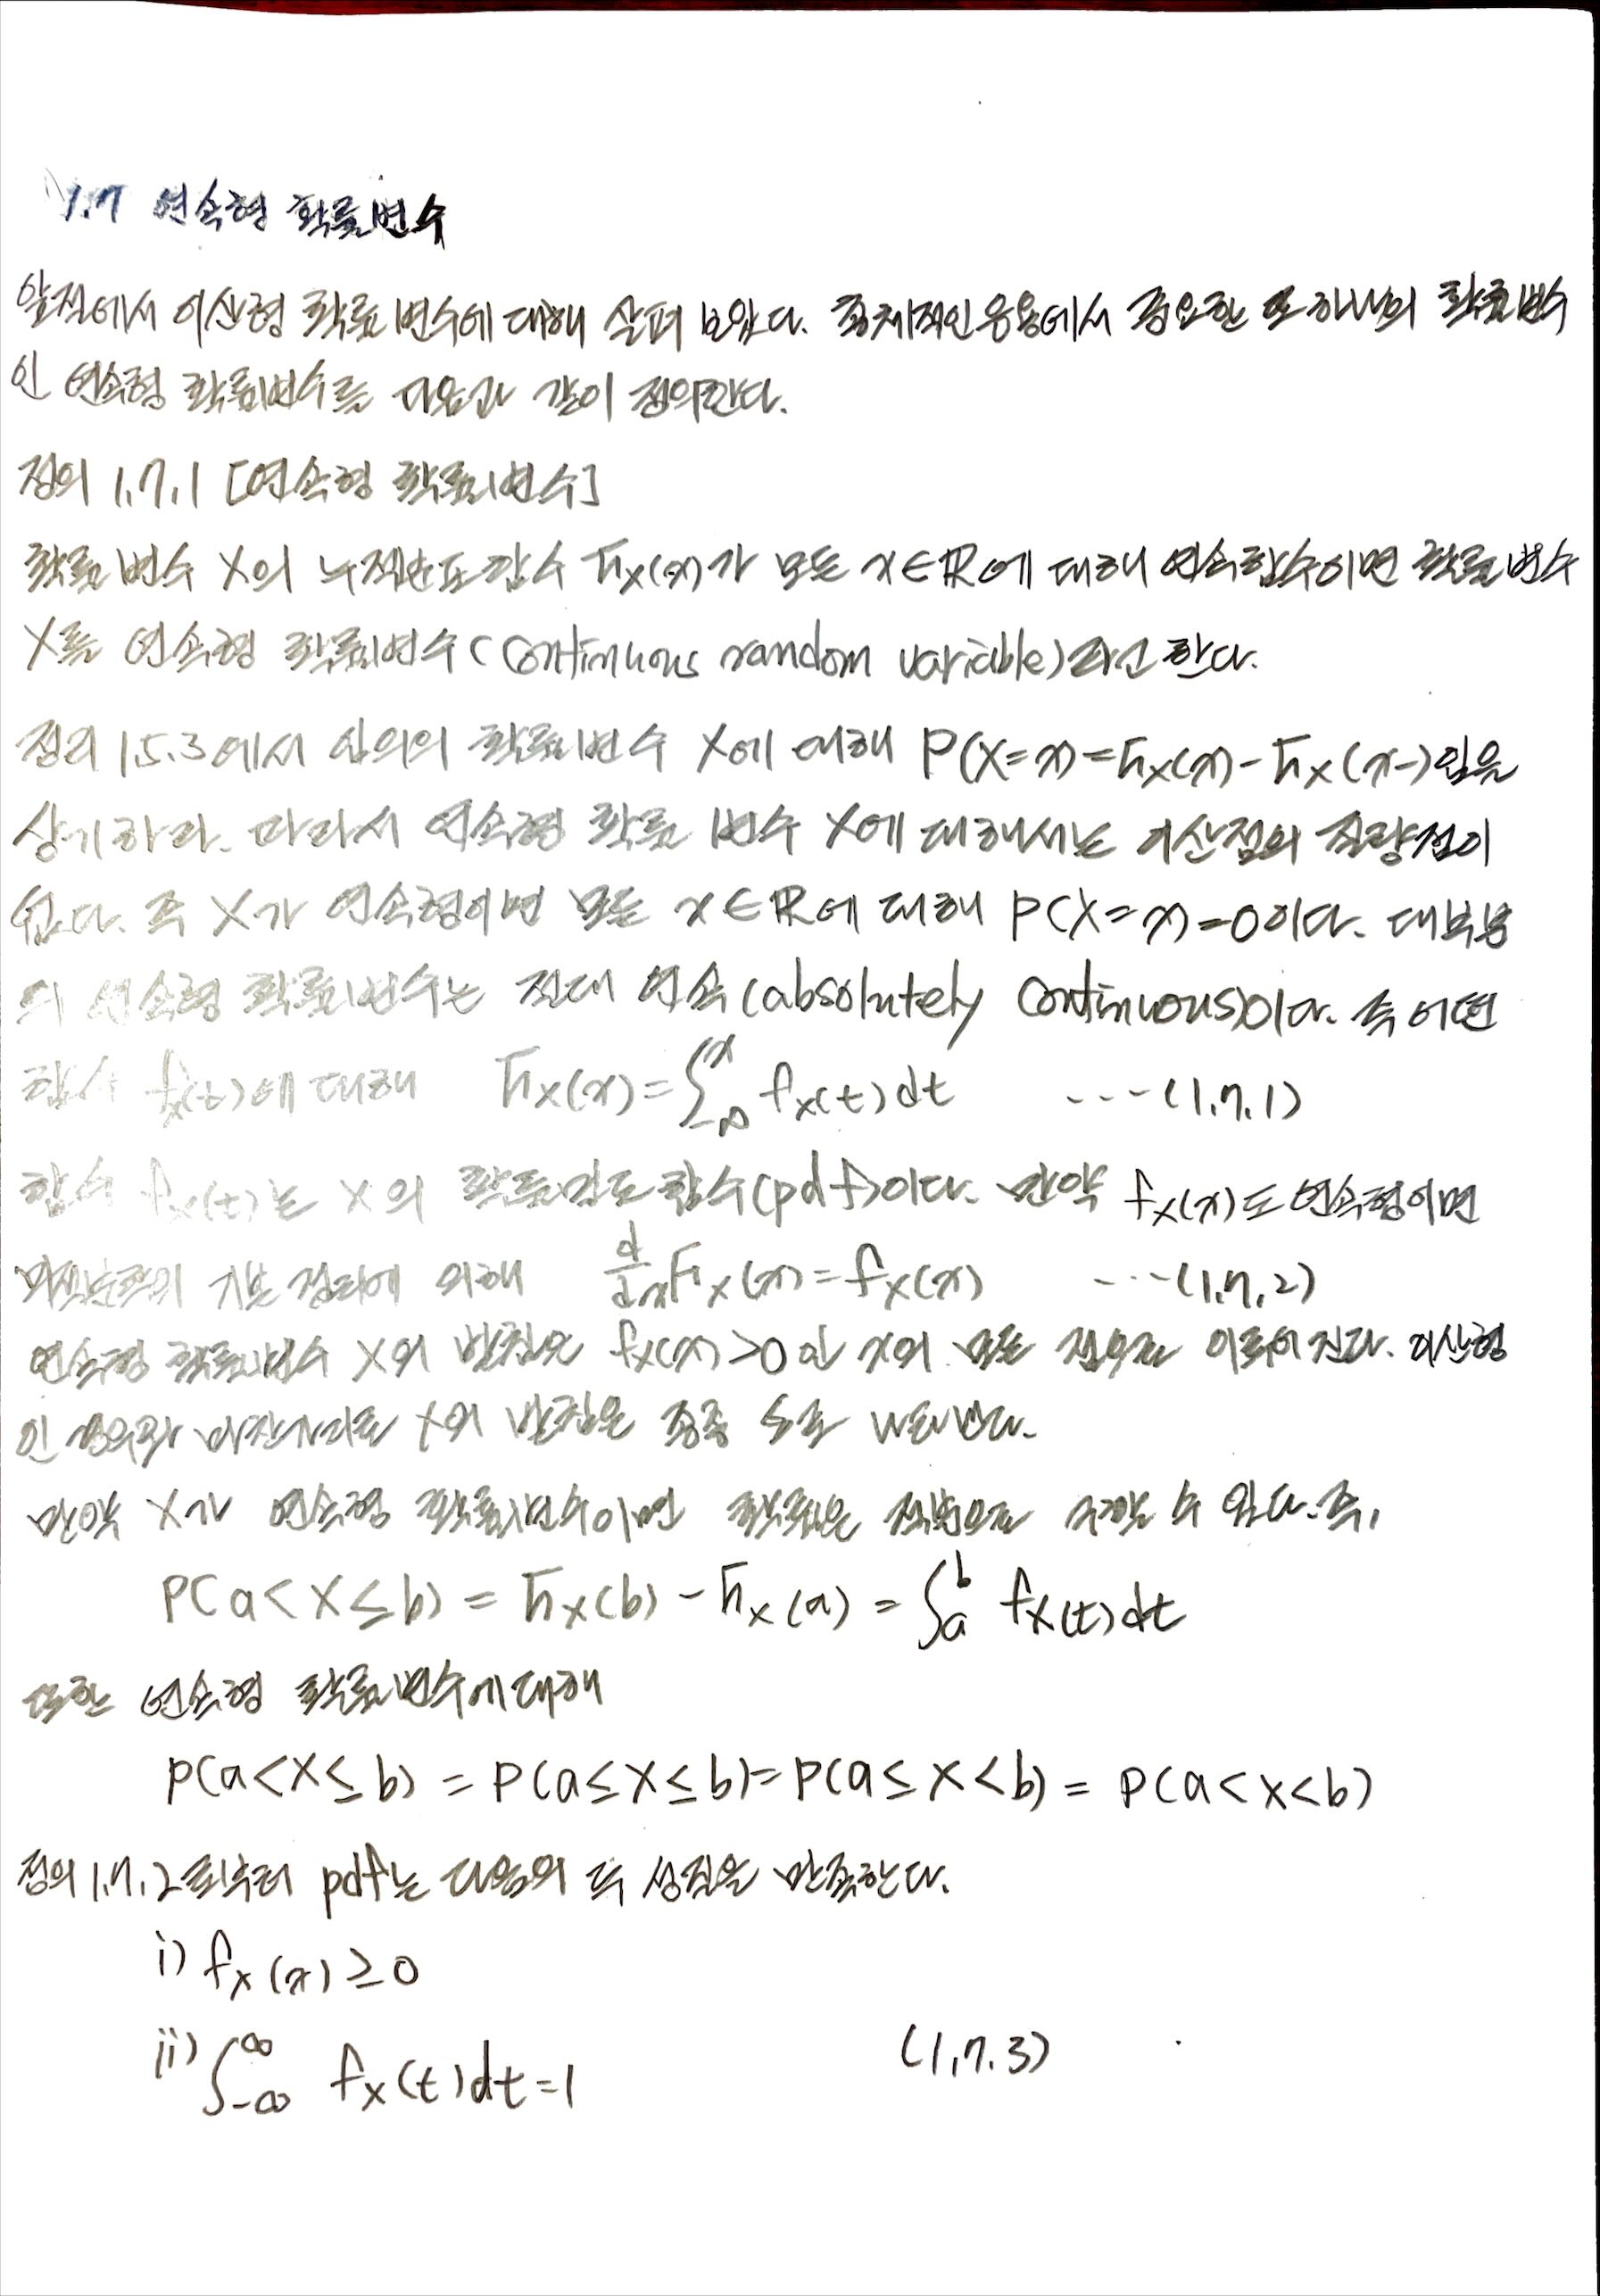 1.7 연속형 확률변수
앞절에서 이산형 확률변수에 대해 살펴 보았다. 통계적인 응용에서 중요한 또 하나의 확률변수
인 연속형 확률변수를 다음과 같이 정의한다.
정의 1.7.1 [연속형 확률변수]
확률변수 X의 누적분포함수 Fx(x)가 모든 x∈ℝ에 대해 연속함수이면 확률변수
X를 연속형 확률변수(continuous random variable)라고 한다.
정리 1.5.3에서 임의의 확률변수 X에 대해 P(X=x)=Fx(x)-Fx(x-)임을
상기하라. 따라서 연속형 확률 변수 X에 대해서는 이산점의 질량점이
없다. 즉 X가 연속형이면 모든 x∈ℝ에 대해 P(X=x)=0이다. 대부분
의 연속형 확률변수는 절대 연속(absolutely continuous)이다. 즉 어떤
함수 fx(t)에 대해 Fx(x)=∫_{-∞}^{x} fx(t)dt ---(1.7.1)
함수 fx(t)는 X의 확률밀도함수(pdf)이다. 만약 fx(x)도 연속형이면
미적분학의 기본 정리에 의해 d/dx Fx(x)=fx(x) ---(1.7.2)
연속형 확률변수 X의 받침은 fx(x)>0인 x의 모든 점으로 이루어진다. 이산형
인 경우와 마찬가지로 X의 받침을 종종 S로 나타낸다.
만약 X가 연속형 확률변수이면 확률은 적분으로 구할 수 있다. 즉,
P(a<X≤b) = Fx(b) - Fx(a) = ∫_{a}^{b} fx(t)dt
또한 연속형 확률변수에 대해
P(a<X≤b) = P(a≤X≤b) = P(a≤X<b) = P(a<X<b)
정의 1.7.2로부터 pdf는 다음의 두 성질을 만족한다.
i) fx(x)≥0
ii) ∫_{-∞}^{∞} fx(t)dt=1 (1.7.3)